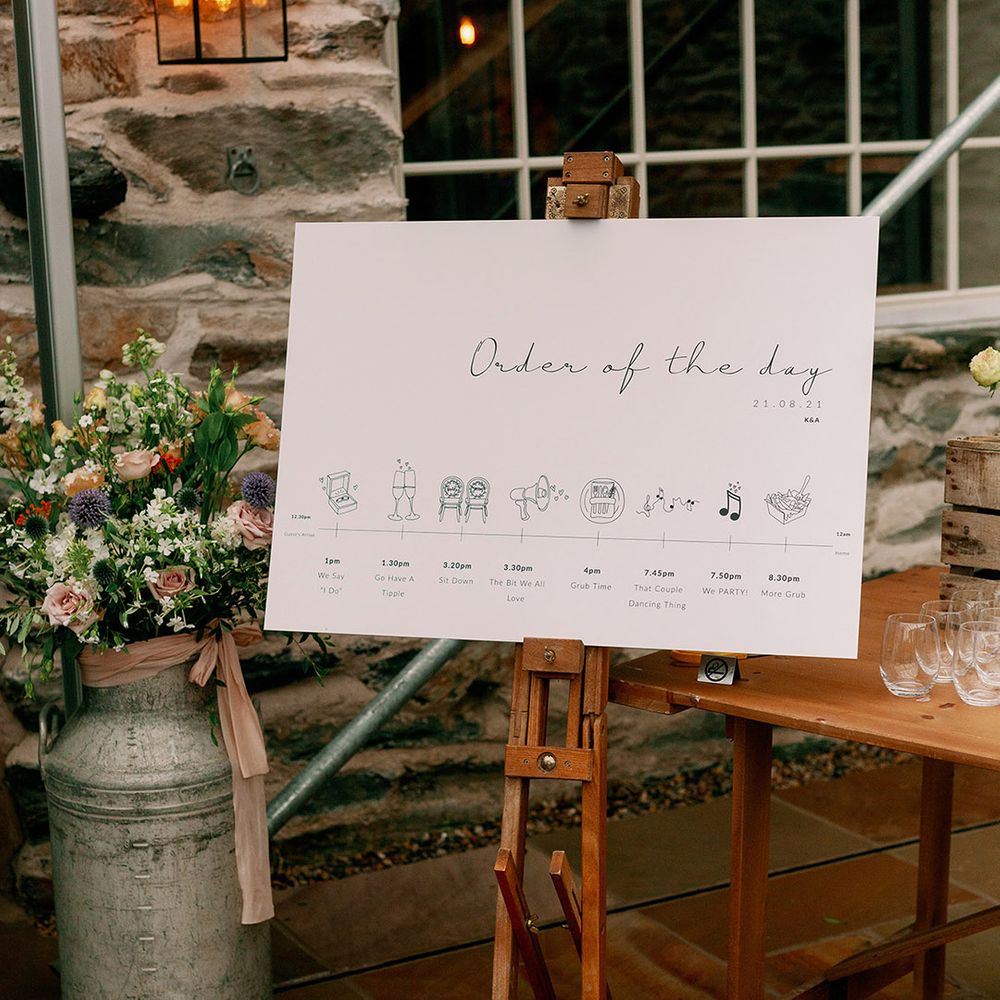 Order of the day
21.08.21
K&A
12.30pm
Guest's Arrive
12am
Home
1pm
We Say
"I Do"
1.30pm
Go Have A
Tipple
3.20pm
Sit Down
3.30pm
The Bit We All
Love
4pm
Grub Time
7.45pm
That Couple
Dancing Thing
7.50pm
We PARTY!
8.30pm
More Grub